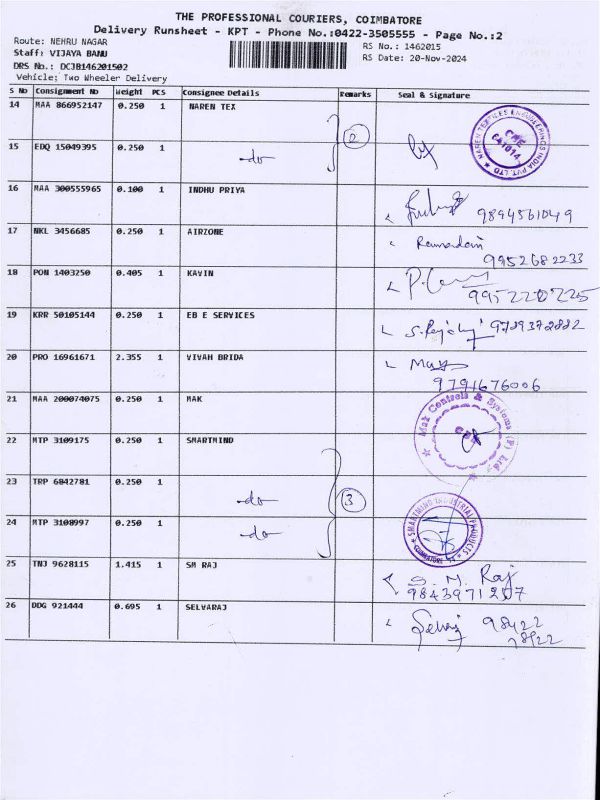 THE PROFESSIONAL COURIERS, COIMBATORE
Delivery Runsheet - KPT - Phone No.:0422-3505555 - Page No.:2
Route: NEHRU NAGAR
RS No.: 1462015
Staff: VIJAYA BANU
RS Date: 20-Nov-2024
DRS No.: DCJB146201502
Vehicle: Two Wheeler Delivery
S No Consignment No Weight PCS Consignee Details Remarks Seal & Signature
14 MAA 866952147 0.250 1 NAREN TEX
NAREN TEXTILES ENGINEERINGS INDIA PVT. LTD
CBE
641014
2
15 EDQ 15049395 0.250 1 -do-
16 MAA 300555965 0.100 1 INDHU PRIYA
9894561049
17 NKL 3456685 0.250 1 AIRZONE
9952682233
18 PON 1403250 0.405 1 KAVIN
995220225
19 KRR 50105144 0.250 1 EB E SERVICES
20 PRO 16961671 2.355 1 VIVAH BRIDA
9791676006
21 MAA 200074075 0.250 1 MAK
Mak Controls & Systems (P) Ltd
CBE
22 MTP 3109175 0.250 1 SMARTMIND
23 TRP 6842781 0.250 1 -do-
3
24 MTP 3108997 0.250 1 -do-
SMARTMIND INDUSTRIAL PRODUCTS
COIMBATORE - 14
25 TNJ 9628115 1.415 1 SM RAJ
S. M. Raj
9843971207
26 DDG 921444 0.695 1 SELVARAJ
98422
78422